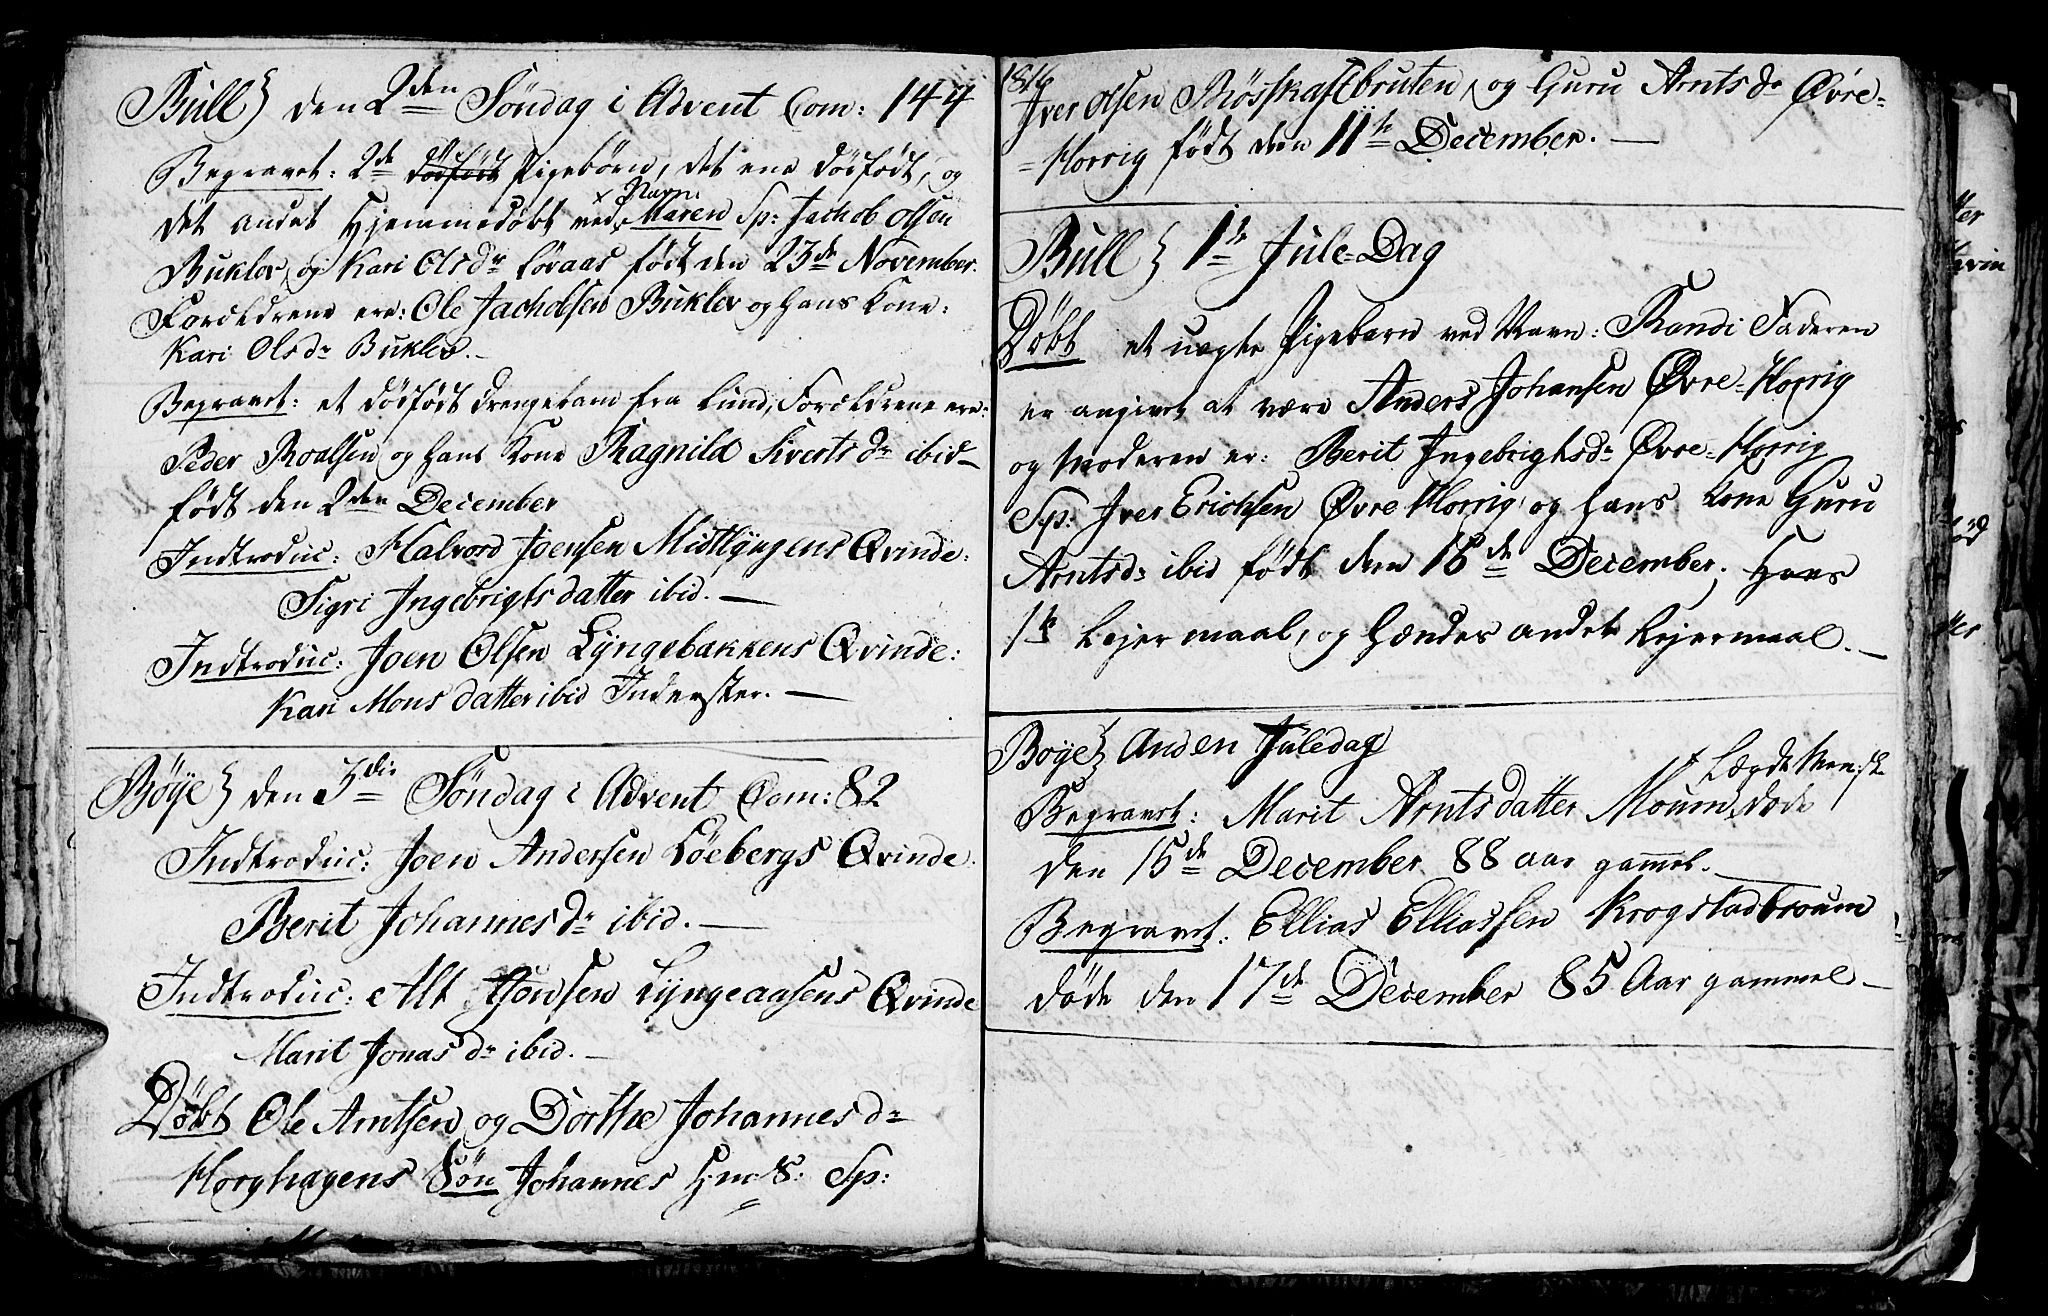 Bull} den 2den Söndag i Advent Com: 144
Begravet: 2de dödfödt Pigebörn, det ene dödfödt, og
det andet Hjemmedöbt ved Navn
Maren Sp: Jachob Olsen
Buklev og Kari Olsdr Løvaas født den 23de November.
Forældrene ere: Ole Jachobsen Buklev og hans Kone:
Kari Olsdr Buklev.
Begravet: et dödfödt Drengebarn fra Lund, Forældrene ere:
Peder Roalsen og hans Kone Ragnild Sivertsdr ibid
født den 2den December
Indtroduc: Halvord Joensen Midtlyngens Qvinde:
Sigri Ingebrigtsdatter ibid.
Indtroduc: Joen Olsen Lyngebakkens Qvinde:
Kari Monsdatter ibid Inderster.
Böye} den 3die Söndag i Advent Com: 82
Indtroduc: Joen Andersen Löebergs Qvinde
Berit Johannesdr ibid.
Indtroduc: Alt Lyngeaasens Qvinde
Marit Jonasdr ibid.
Döbt Ole Arntsen og Dorthe Johannesdr
Horghagens Sön Johannes Hmd: Sp:
1816
Iver Olsen Röskaftbruten, og Guru Arntsdr Øvre-
-Horrig født den 11te December.
Bull} 1te Jule-Dag
Döbt et uægte Pigebarn ved Navn: Randi Faderen
er angivet at være Anders Johansen Øvre-Horrig
og Moderen er: Berit Ingebrigtsdr Øvre-Horrig
Sp: Iver Ericksen Øvre Horrig og hans Kone Guru
Arntsdr ibid født den 16de December. Hans
1te Lejermaal, og hendes andet Lejermaal.
Böye} Anden Juledag
Begravet: Marit Arntsdatter Moum, Lægdelem døde
den 15de December 88 aar gammel.
Begravet: Ellias Elliassen Krogstadtrøeum
døde den 17de December 85 Aar gammel